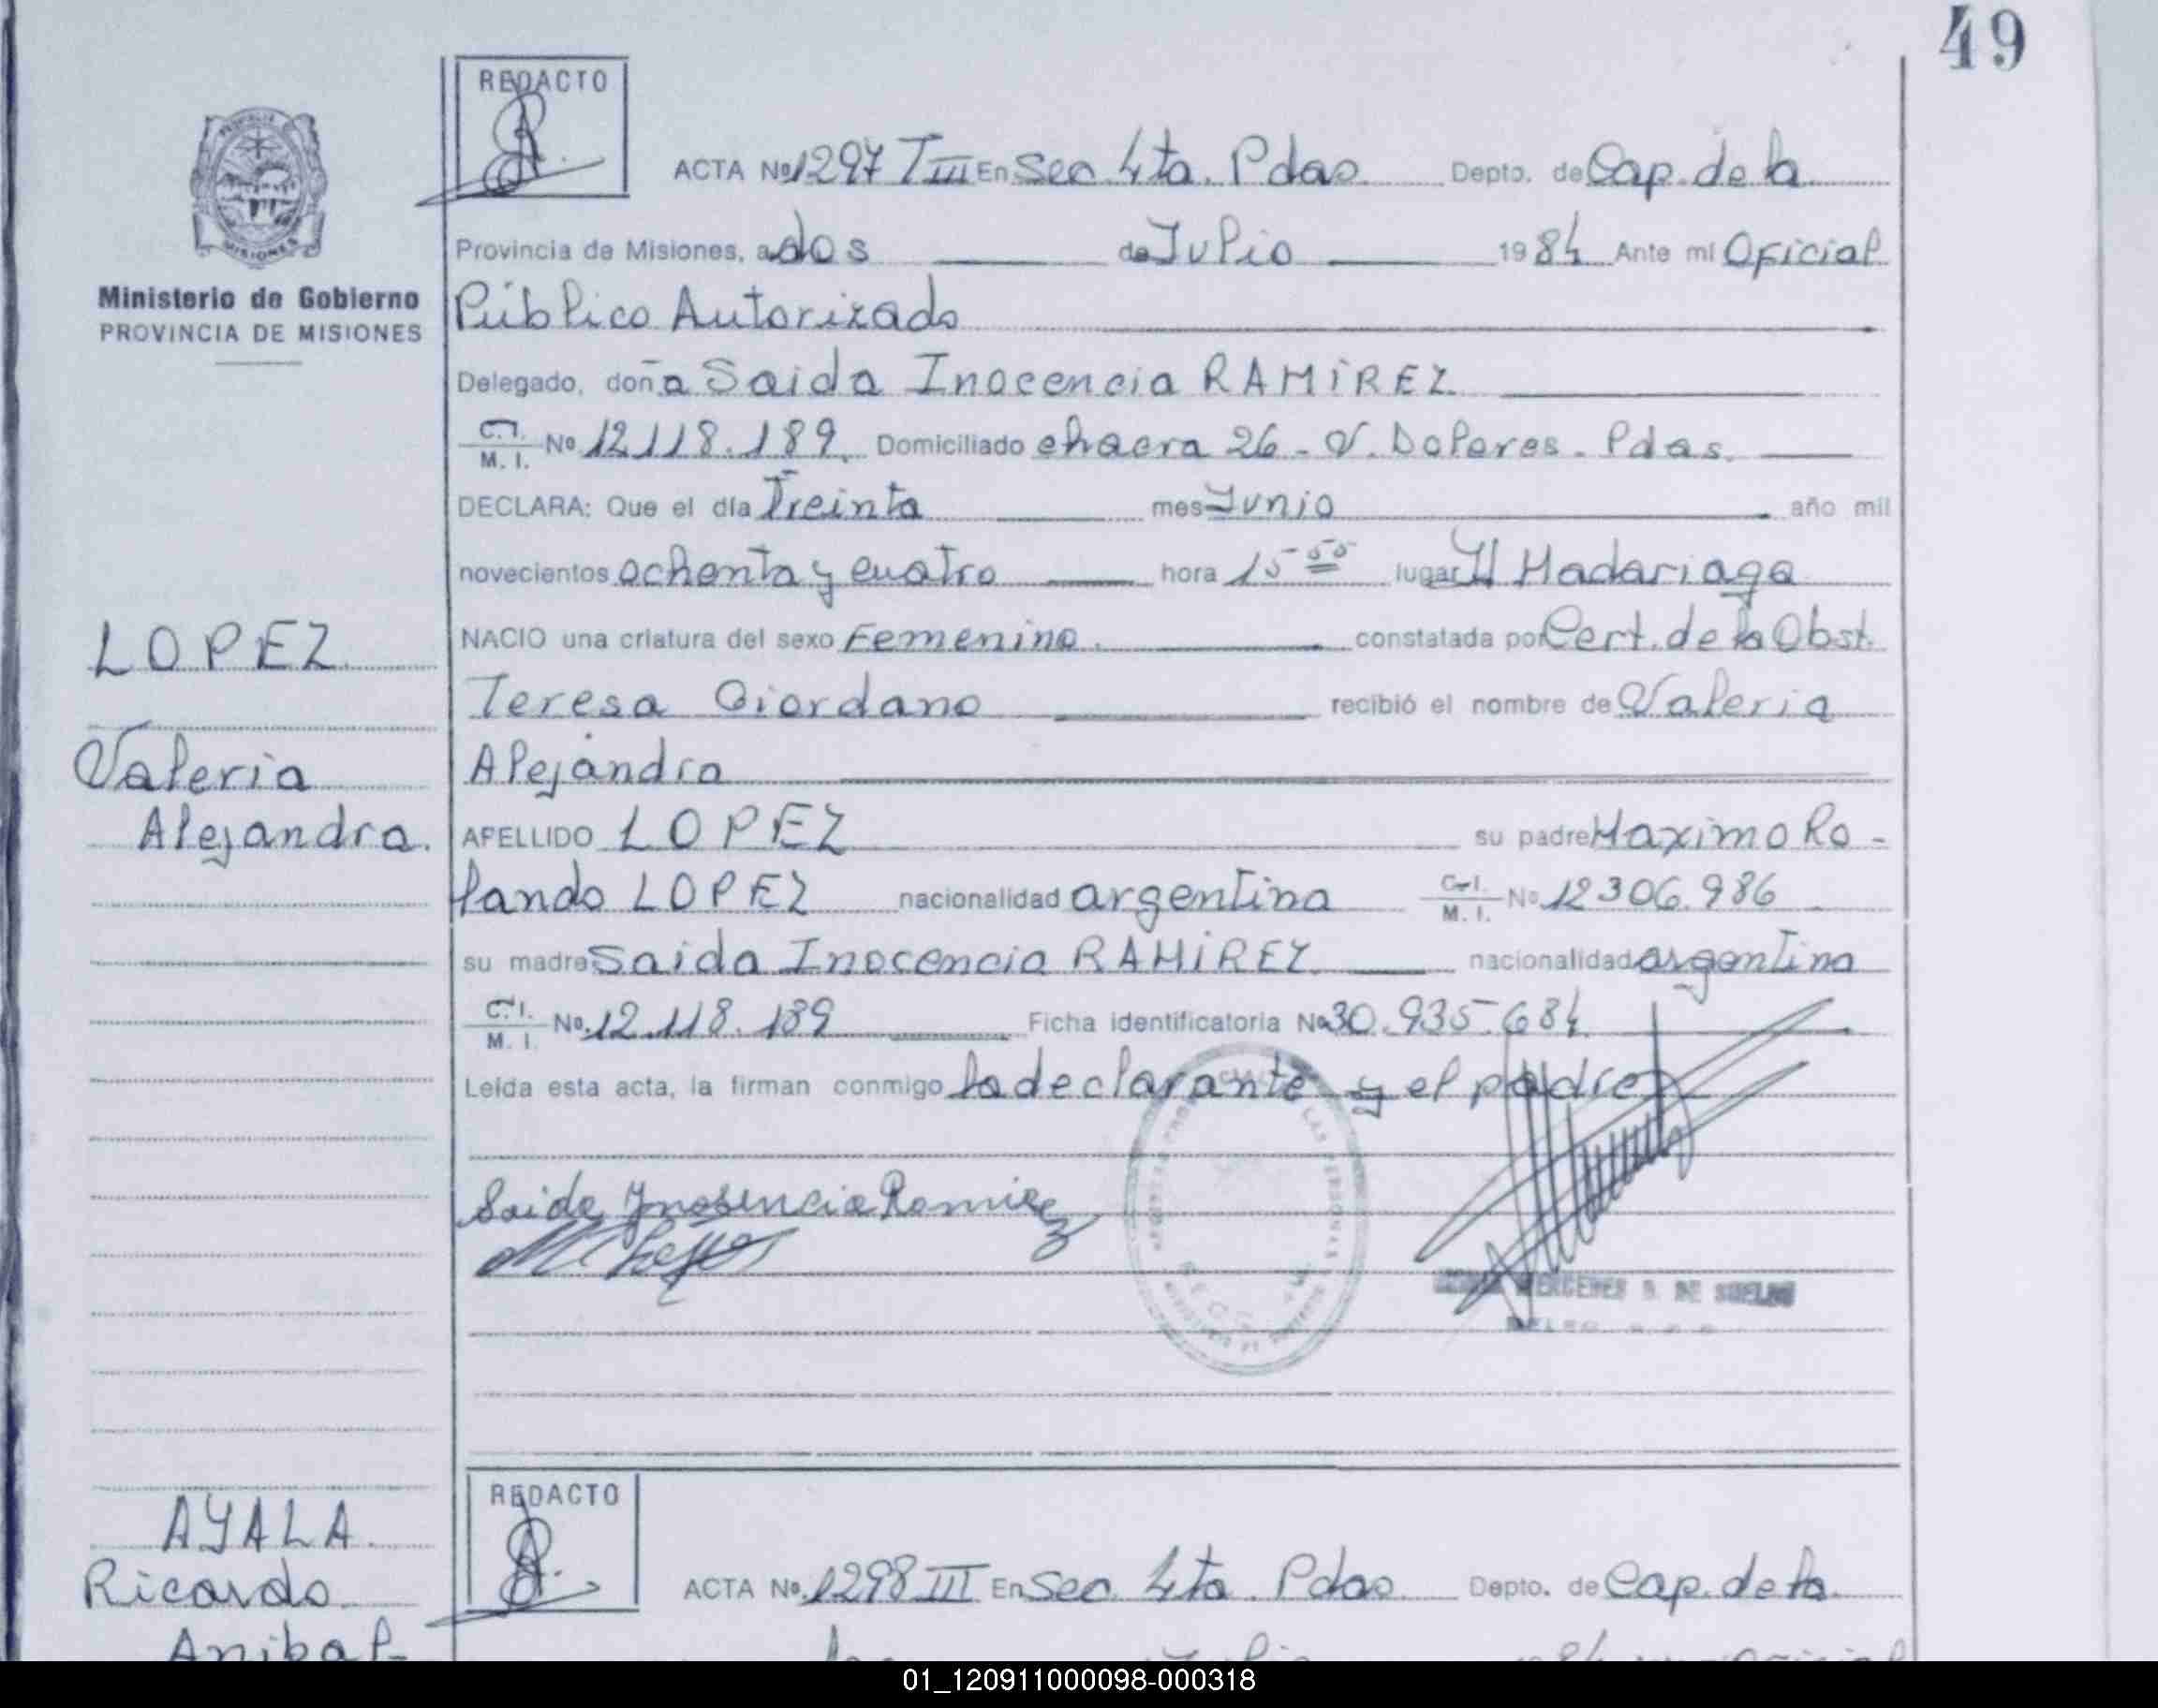 49
REDACTO
ACTA Nº 1297 T III En Sec 4ta. Pdas. Depto. de Cap. de la
Provincia de Misiones, a dos de Julio 1984 Ante mi Oficial
Público Autorizado
Delegado, doña Saida Inocencia RAMÍREZ
C.I. M. I. Nº 12.118.189. Domiciliado chacra 26 - V. Dolores - Pdas.
DECLARA: Que el día Treinta mes Junio año mil
novecientos ochenta y cuatro hora 15-55 lugar H Madariaga
NACIO una criatura del sexo Femenino. constatada por Cert. de la Obst.
Teresa Giordano recibió el nombre de Valeria
Alejandra
APELLIDO LOPEZ su padre Maximo Ro-
lando LOPEZ nacionalidad argentina C.I. M. I. Nº 12306.986
su madre Saida Inocencia RAMÍREZ nacionalidad argentina
C.I. M. I. Nº 12.118.189 Ficha identificatoria Nº 30.935.684
Leída esta acta, la firman conmigo la declarante y el padre
Saida Inosencia Ramirez
MERCEDES S. DE
Ministerio de Gobierno
PROVINCIA DE MISIONES
LOPEZ
Valeria
Alejandra.
REDACTO
ACTA Nº 1298 III En Sec. 4ta Pdas. Depto. de Cap. de la
AYALA
Ricardo
Anibal-
01_120911000098-000318